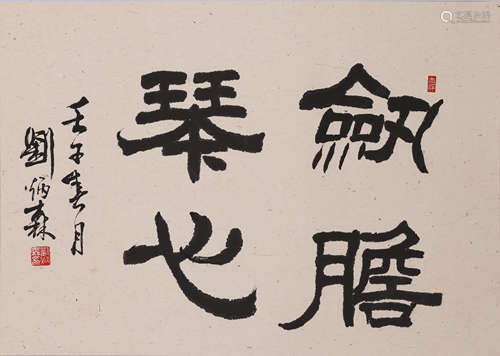 劔膽
琴心
壬午春月
劉炳森